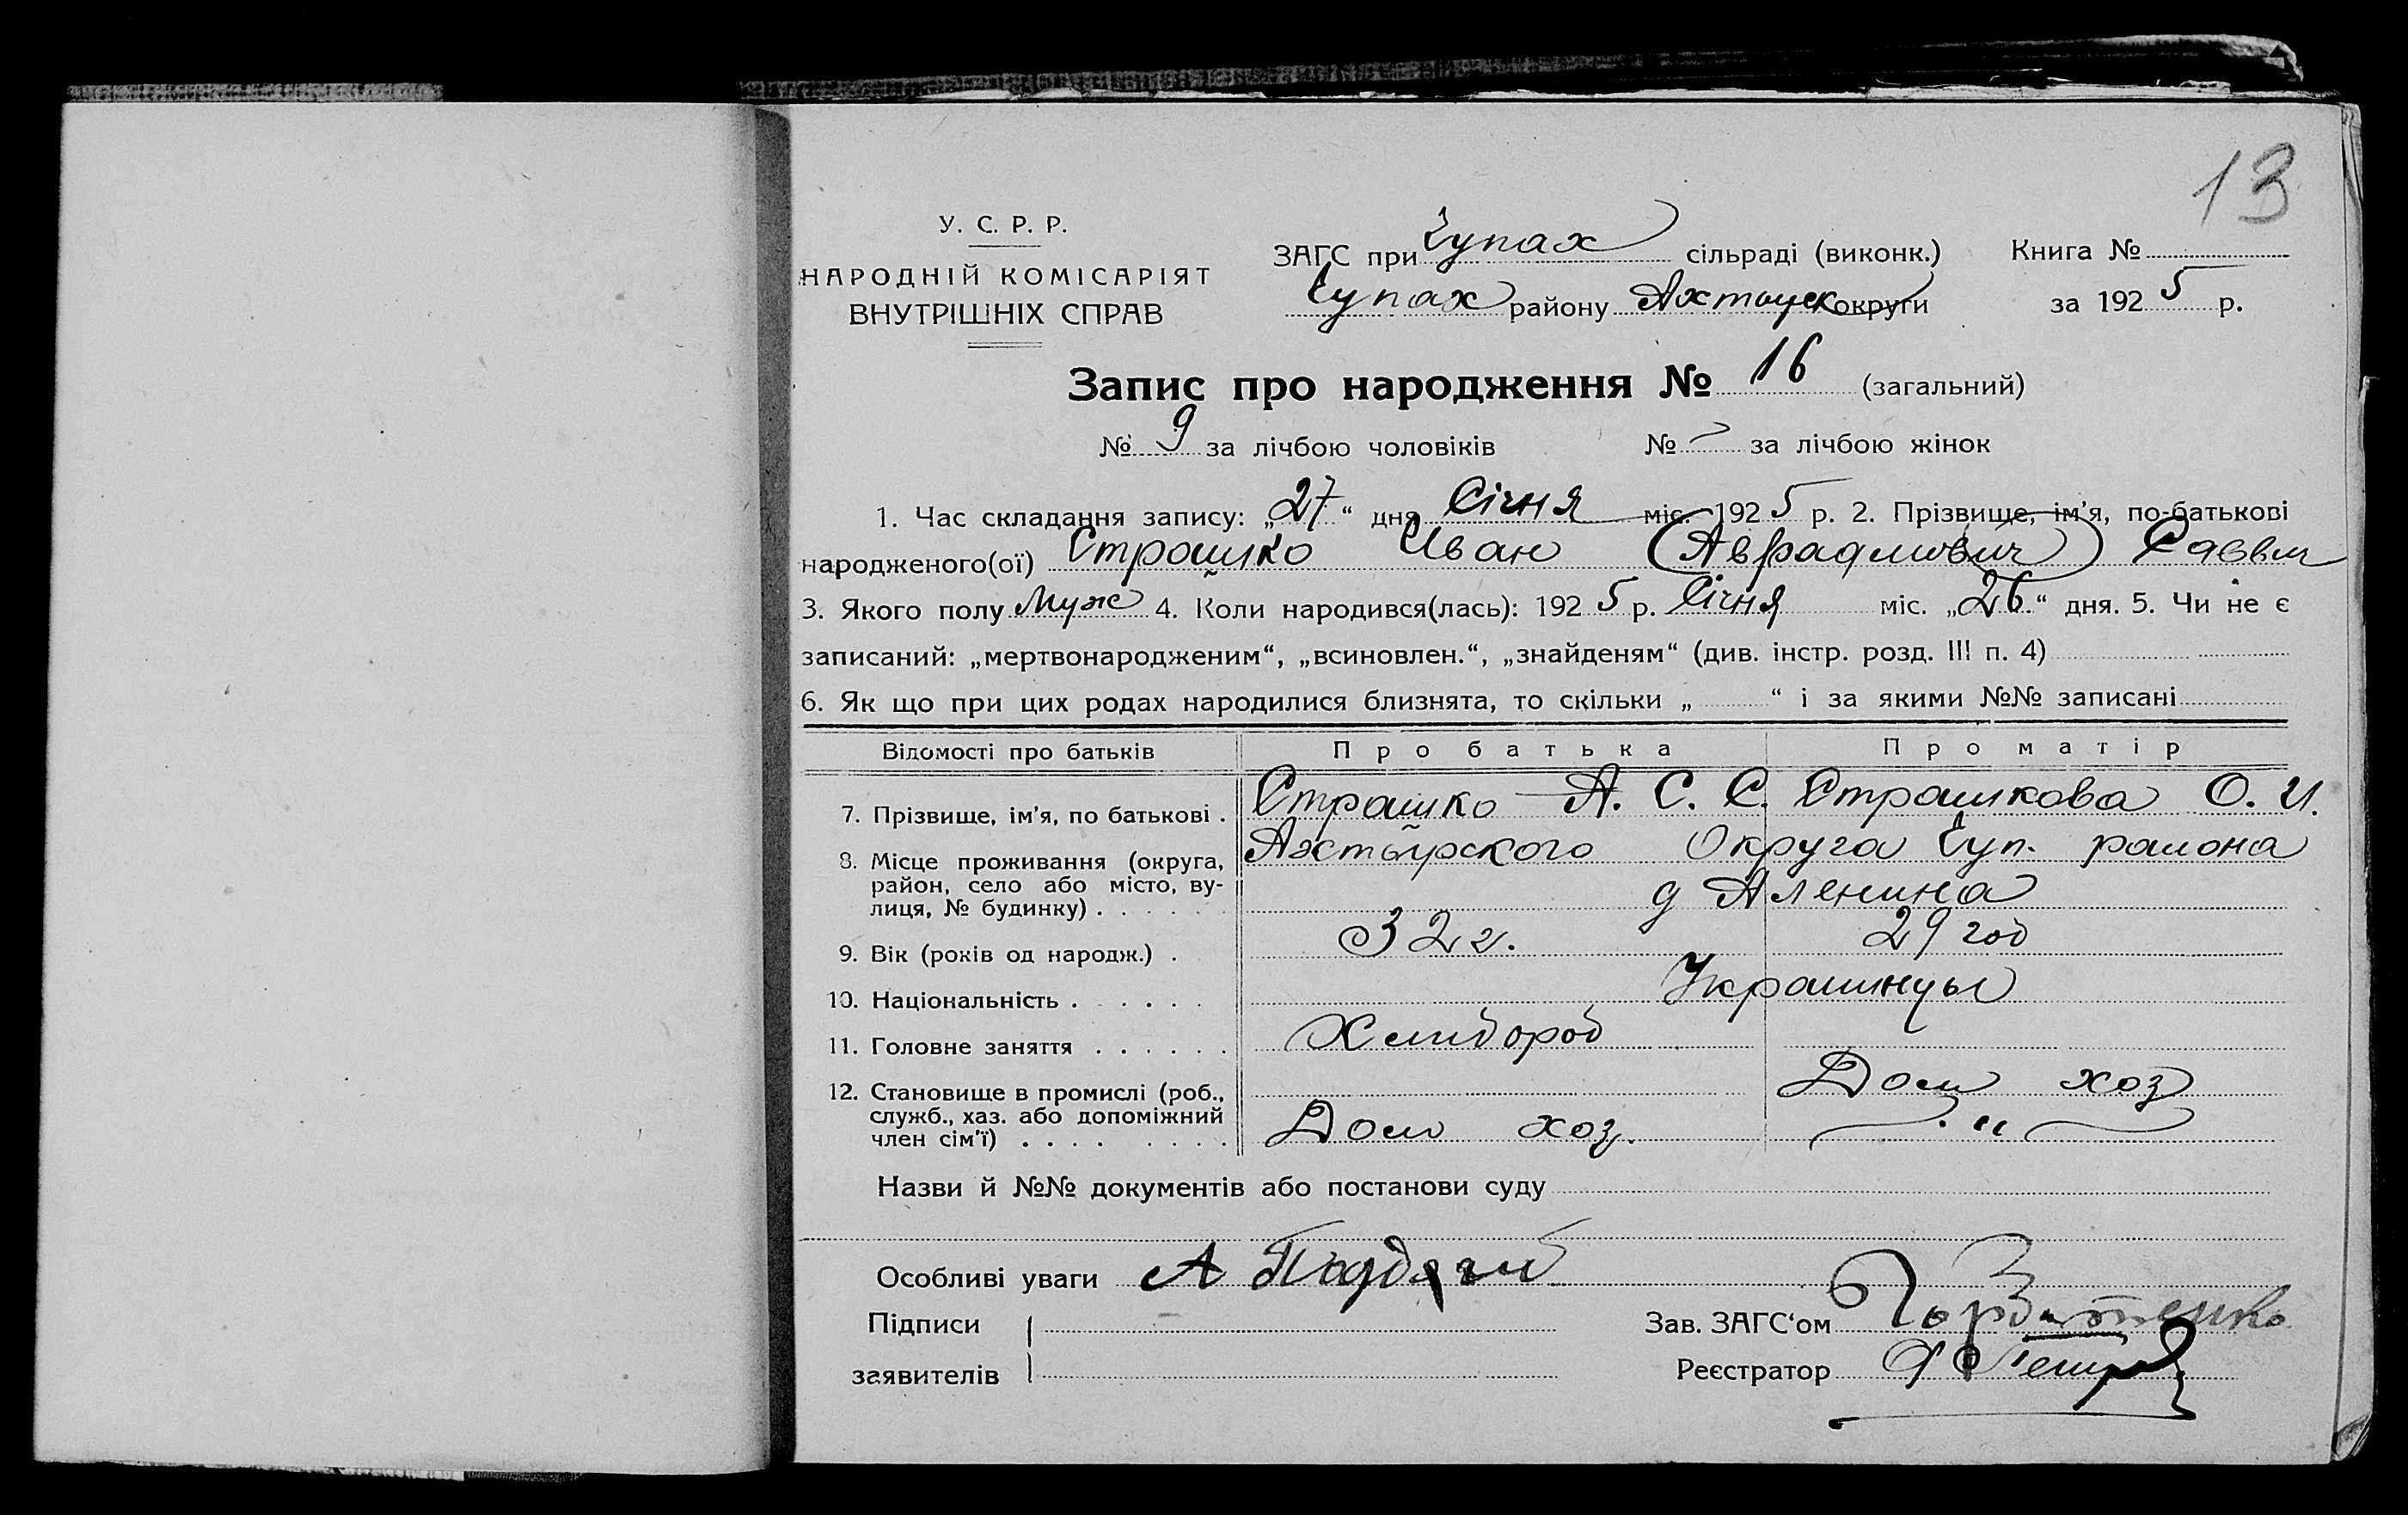 13
У. С. Р. Р.
НАРОДНІЙ КОМІСАРІЯТ
ВНУТРІШНІХ СПРАВ
ЗАГС при Чупах сільраді (виконк.) Книга №
Чупах району округи за 1925 р.
Запис про народження № 16 (загальний)
№ 9 за лічбою чоловіків № за лічбою жінок
1. Час складання запису: „27“ дня Січня міс. 1925 р. 2. Прізвище, ім’я, по-батькові
народженого(ої) Страшко Иван
3. Якого полу Муж 4. Коли народився(лась): 1925 р. Січня міс. „26“ дня. 5. Чи не є
записаний: „мертвонародженим“, „всиновлен.“, „знайденям“ (див. інстр. розд. III п. 4)
6. Як що при цих родах народилися близнята, то скільки „ “ і за якими №№ записані
Відомості про батьків Про батька Про матір
7. Прізвище, ім’я, по батькові . Страшко А. С. С. Страшкова О. И.
8. Місце проживання (округа, Ахтырского Округа Чуп. района
район, село або місто, ву-
лиця, № будинку) . . . . . . д Аленина
9. Вік (років од народж.) . 32 г. 29 год
10. Національність . . . . . . Украинцы
11. Головне заняття . . . . . . Хлибороб
12. Становище в промислі (роб., Дом хоз
служб., хаз. або допоміжний
член сім’ї) . . . . . . . . Дом хоз. "
Назви й №№ документів або постанови суду
Особливі уваги А
Підписи
заявителів
Зав. ЗАГС‘ом
Реєстратор